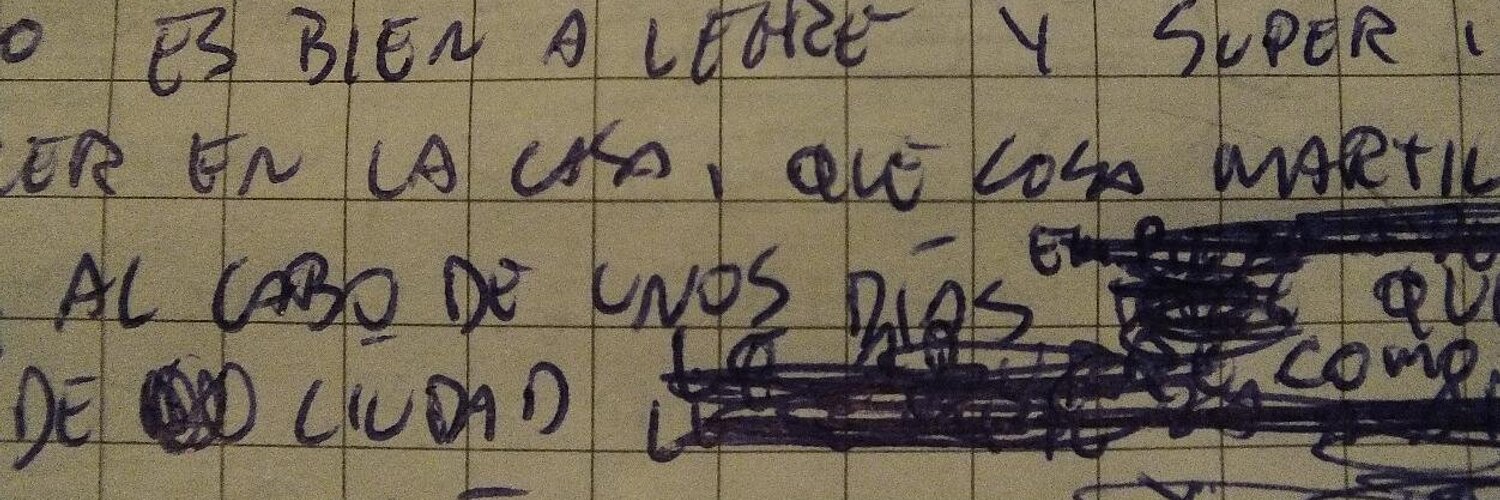 O ES BIEN ALEGRE Y SUPER
ER EN LA CASA, QUE COSA MARTIL
AL CABO DE UNOS DÍAS QU
DE CIUDAD COMO